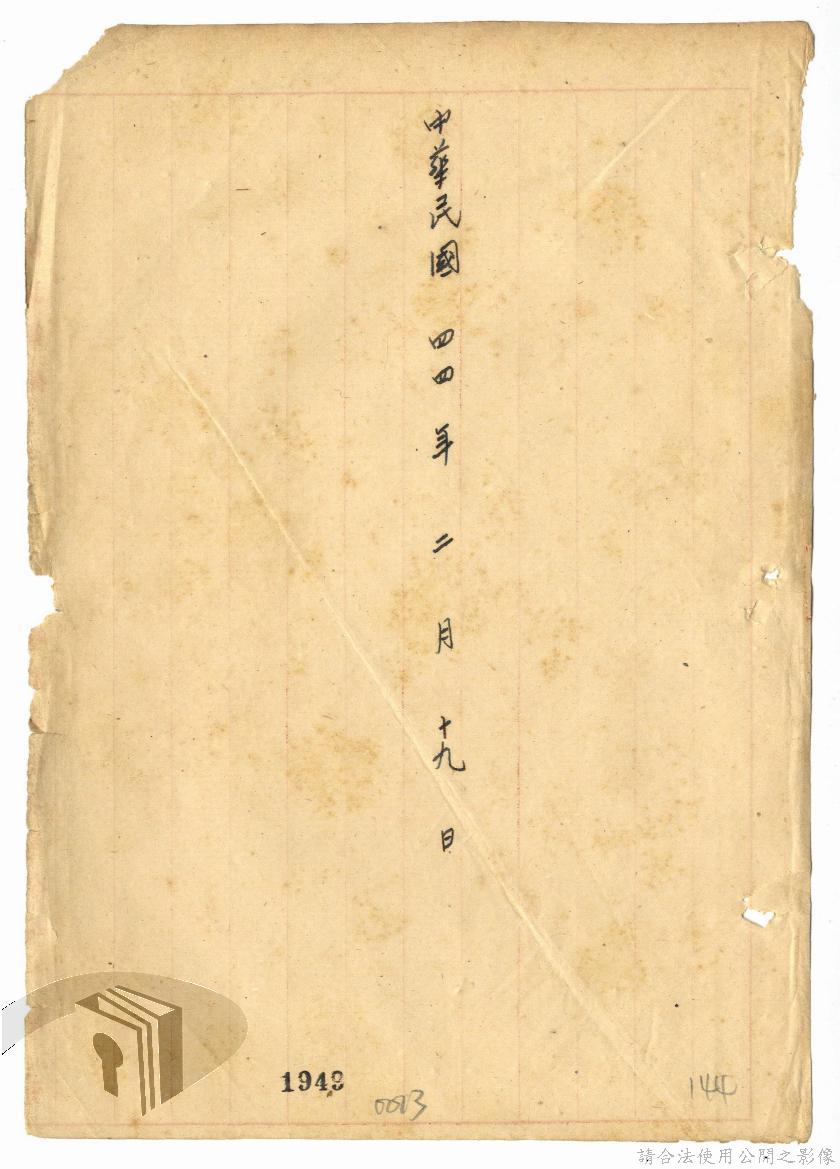 中華民國 四四 年 二 月 十九 日
1943
0083
144
請合法使用公開之影像